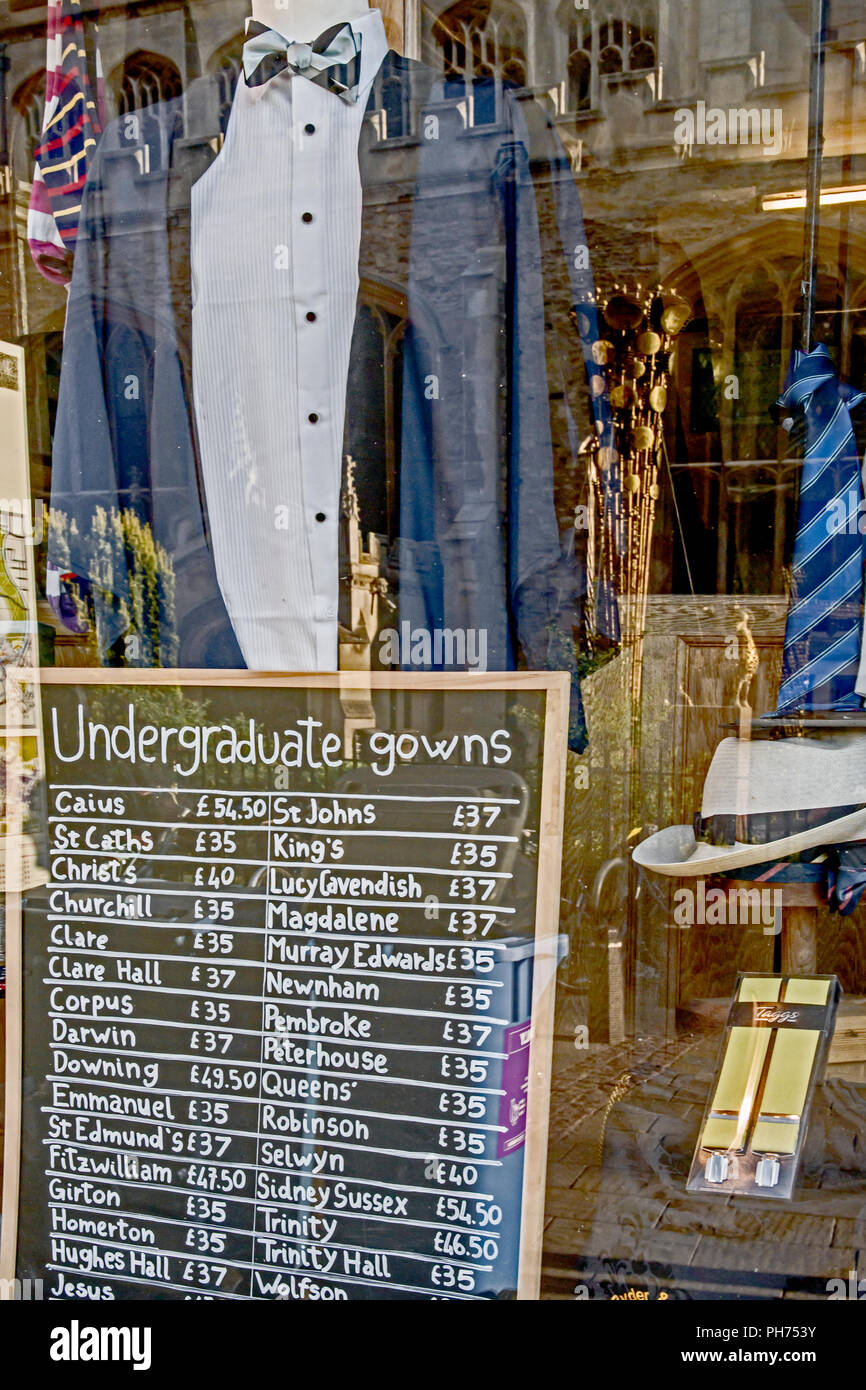 Undergraduate gowns
Caius £54.50
St Caths £35
Christ's £40
Churchill £35
Clare £35
Clare Hall £37
Corpus £35
Darwin £37
Downing £49.50
Emmanuel £35
St Edmund's £37
Fitzwilliam £47.50
Girton £35
Homerton £35
Hughes Hall £37
Jesus
St Johns £37
King's £35
Lucy Cavendish £37
Magdalene £37
Murray Edwards £35
Newnham £35
Pembroke £37
Peterhouse £35
Queens' £35
Robinson £35
Selwyn £40
Sidney Sussex £54.50
Trinity £46.50
Trinity Hall £35
Wolfson
Taggs
ryder &
alamy
alamy
Image ID: PH753Y
www.alamy.com